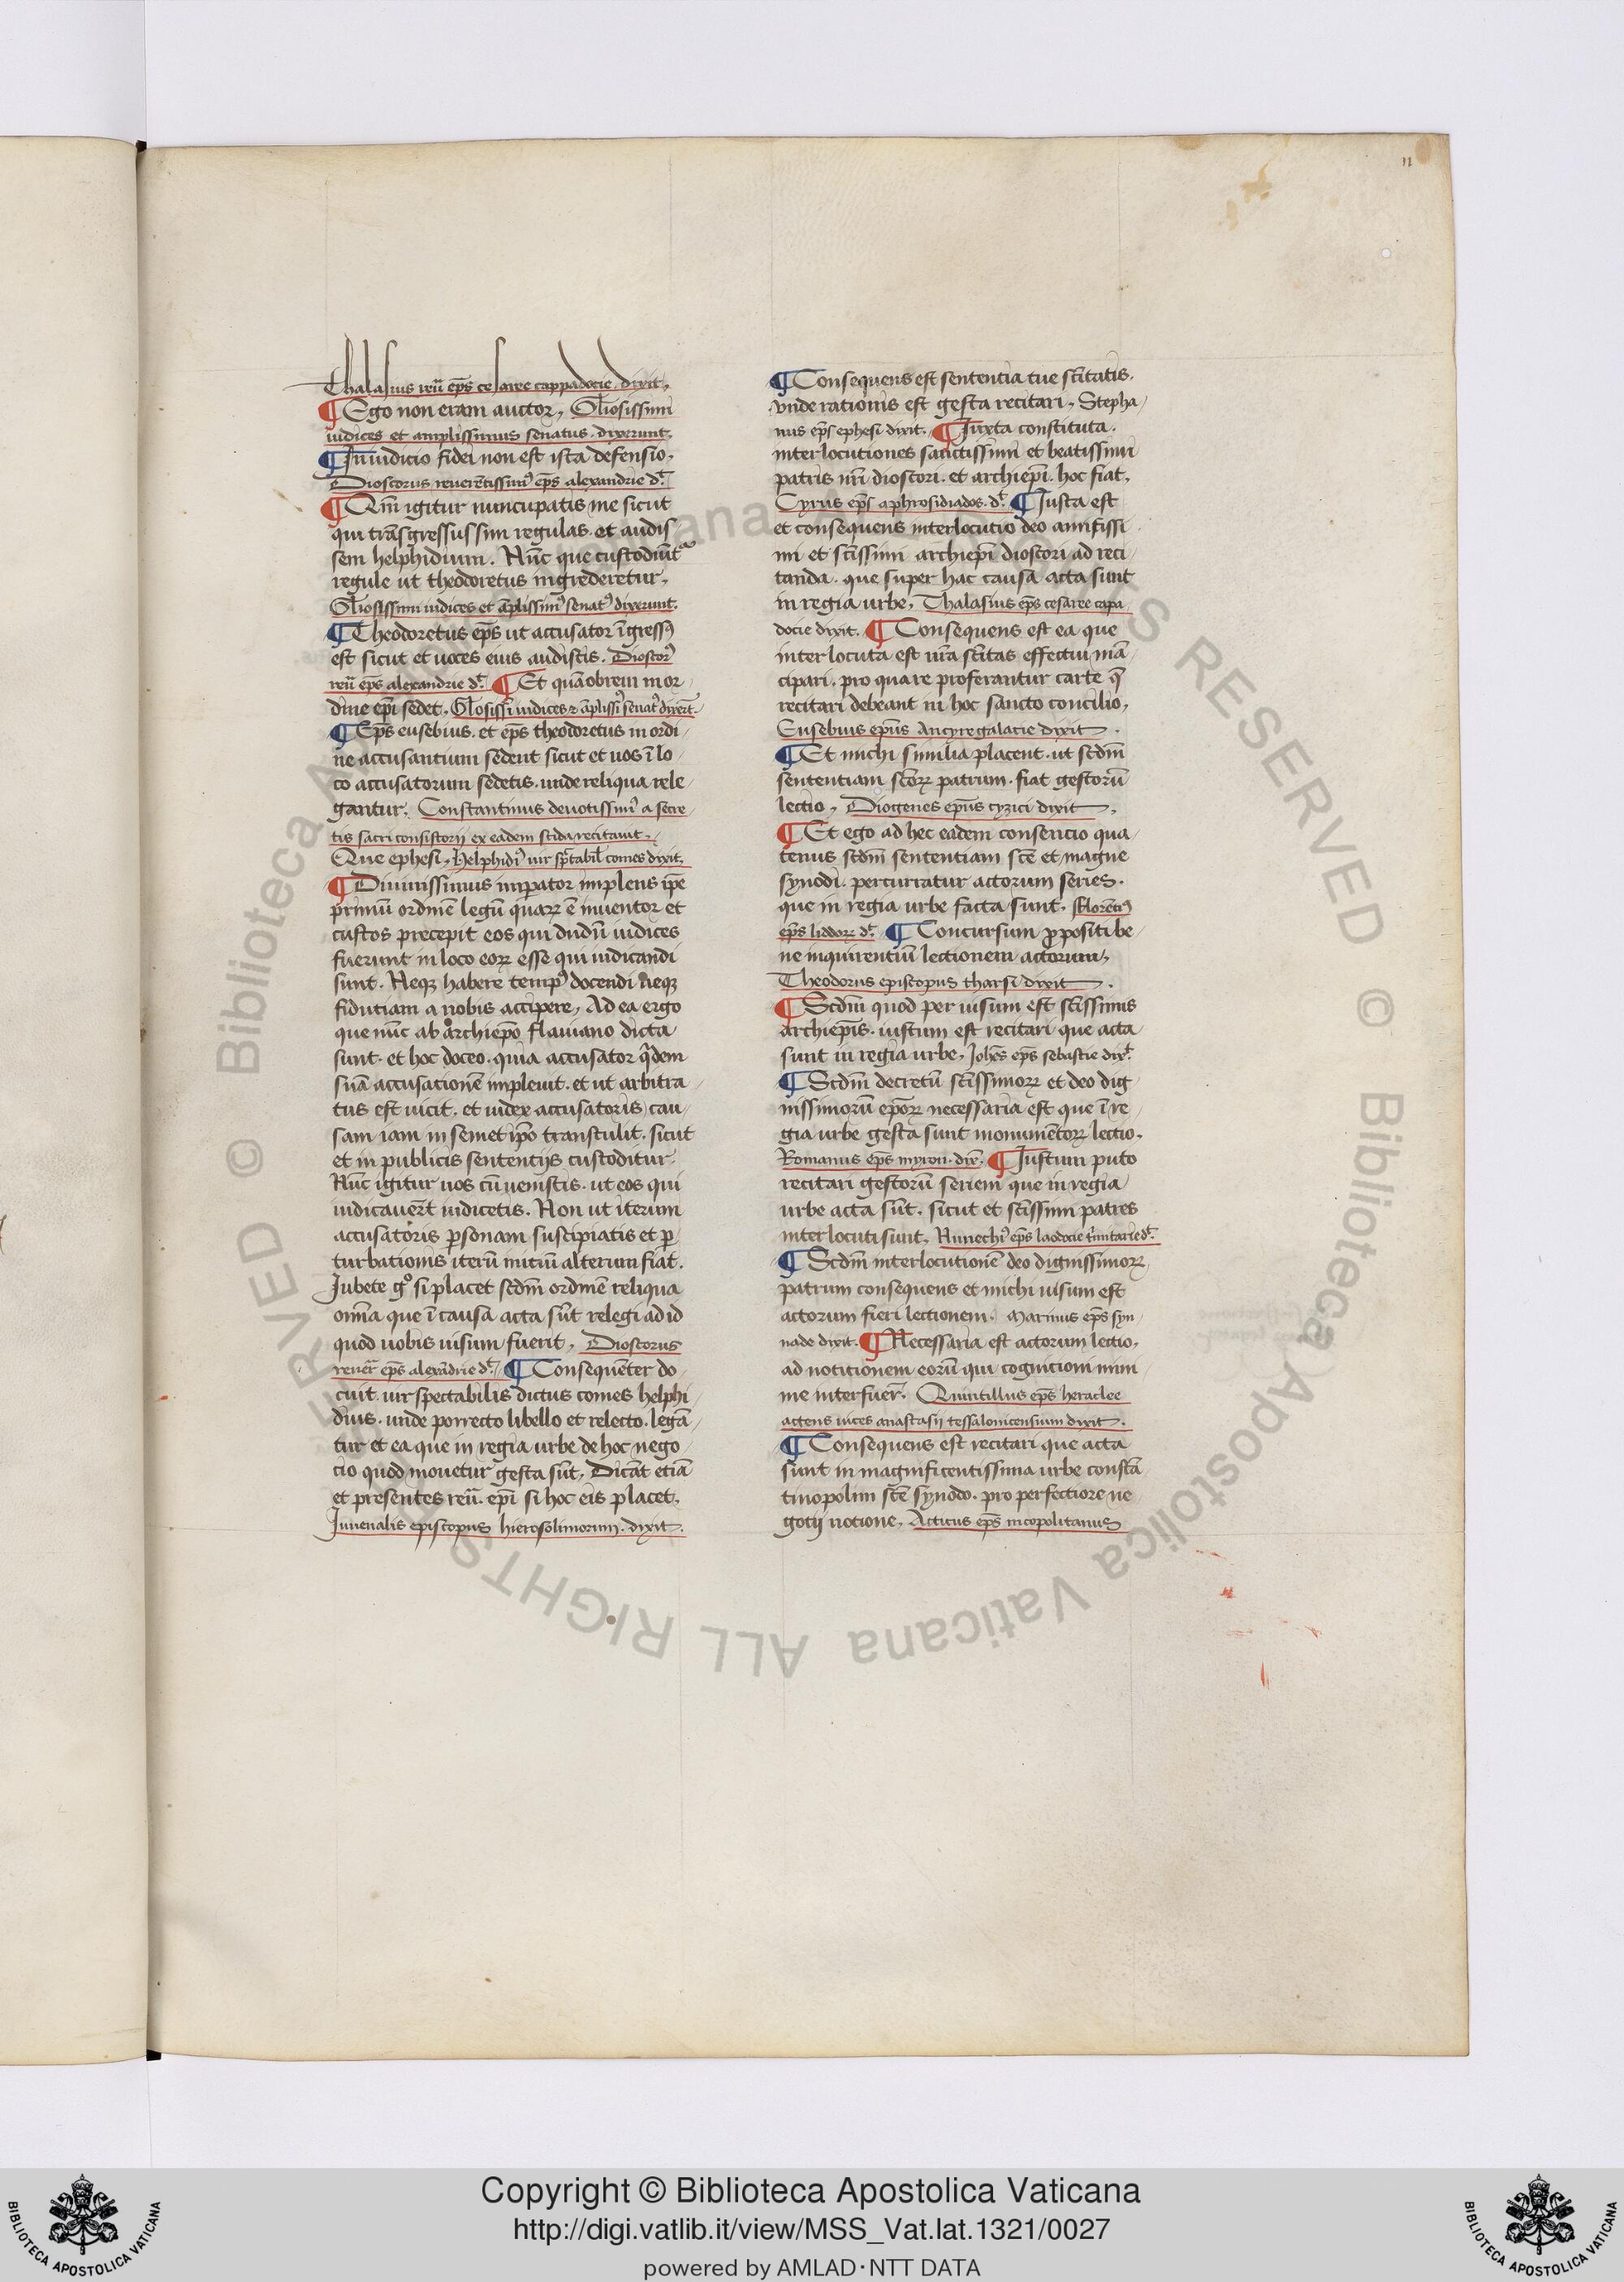 11
Thalasius reū ep̄s cesaree cappadocie. dixit.
¶ Ego non eram auctor. Gl̄osissimi
iudices et amplissimus senatus. dixerunt.
¶ In iudicio fidei non est ista defensio.
Dioscorus reuerētissim᾿ ep̄s alexandrie d̄t
¶ Qm̄ igitur nuncupatis me sicut
qui trāsgressus sim regulas. et audis
sem helphidium. Nūc que custodiūt᾿
regule ut theodoretus ingrederetur.
Gl̄osissimi iudices et āplissim᾿ senat᾿ dixerunt.
¶ Theodoretus ep̄s ut accusator īgress᾿
est sicut et uoces eius audistis. Dioscor᾿
reū ep̄s alexandrie d̄t ¶ Et quāobrem in or
dine ep̄i sedet. Gl̄osissī iudices ⁊ āplissī᾿ senat᾿ dixer̄t
¶ Ep̄s eusebius. et ep̄s theodoretus in ordi
ne accusantium sedent sicut et uos ī lo
co accusatorum sedetis. unde reliqua rele
gantur. Constantinus deuotissim᾿ a secre
tis sacri consistorij ex eadem scida recitauit.
Que ephesi. Helphidi᾿ uir sp̄tabil̄ comes dixit.
¶ Diuinissimus imp̄ator implens ip̄e
primū ordinē legū quarꝝ ē inuentor et
custos precepit eos qui dudū iudices
fuerunt in loco eorꝝ esse qui iudicandi
sunt. Neqꝫ habere temp᾿ docendi neqꝫ
fidutiam a nobis accipere. Ad ea ergo
que nūc ab archiep̄o flauiano dicta
sunt. et hoc doceo. quia accusator q̄dem
suā accusationē impleuit. et ut arbitra
tus est uicit. et iudex accusatoris cau
sam iam in semet ip̄o transtulit. sicut
et in publicis sententijs custoditur.
Nūc igitur uos cū uenistis. ut eos qui
iudicauer̄t iudicetis. Non ut iterum
accusatoris ꝑsonam suscipiatis et ꝑ
turbationis iterū initiū alterum fiat.
Iubete g᾿ si placet scd̄m ordinē reliqua
om̄ia que ī causa acta sūt relegi ad id
quod uobis uisum fuerit. Dioscorus
reuer̄ ep̄s alexādrie d̄t ¶ Consequēter do
cuit uir spectabilis dictus comes helphi
dius. unde porrecto libello et relecto. legā
tur et ea que in regia urbe de hoc nego
cio quod mouetur gesta sūt. Dicāt etiā
et presentes reū. ep̄i si hoc eis placet.
Iuuenalis episcopus hierosolimorum. dixit.
¶ Consequens est sententia tue sc̄itatis.
vnde rationis est gesta recitari. Stepha
nus ep̄s ephesi dixit. ¶ Iuxta constituta.
interlocutiones sanctissimi et beatissimi
patris nr̄i dioscori. et archiep̄i. hoc fiat.
Cyrus ep̄s aphrosidiados. d̄t ¶ Iusta est
et consequens interlocutio deo amātissi
mi et sc̄issimi archiep̄i dioscori ad reci
tanda. que super hac causa acta sunt
in regia urbe. Thalasius ep̄s cesaree capa
docie dixit. ¶ Consequens est ea que
interlocuta est ur̄a sc̄itas effectui mā
cipari. pro qua re proferantur carte q̄
recitari debeant in hoc sancto concilio.
Eusebius ep̄us Ancyre galacie dixit
¶ Et michi similia placent. ut scd̄m
sententiam sc̄orꝝ patrum. fiat gestorū
lectio. Diogenes ep̄us cyzici dixit
¶ Et ego ad hec eadem consencio qua
tenus scd̄m sententiam sc̄e et magne
synodi. percurratur actorum series.
que in regia urbe facta sunt. Florēti᾿
ep̄s liddorꝝ d̄t ¶ Concursum ꝓpositi be
ne inquirentiū lectionem actorum.
Theodorus episcopus tharsi dixit
¶ Scd̄m quod per uisum est sc̄issimis
archiep̄is. iustum est recitari que acta
sunt in regia urbe. Ioh̄es ep̄s sebastie dix̄t
¶ Scd̄m decretū sc̄issimorꝝ et deo dig
nissimorū ep̄orꝝ necessaria est que ī re
gia urbe gesta sunt monumētorꝝ lectio.
Romanus ep̄s myron. dix̄. ¶ Iustum puto
recitari gestorū seriem que in regia
urbe acta sūt. sicut et sc̄issimi patres
interlocuti sunt. Nunechi᾿ ep̄s laodocie t̄initarie d̄t
¶ Scd̄m interlocutionē deo dignissimorꝝ
patrum consequens et michi uisum est
actorum fieri lectionem. Marinus ep̄s syn
nade dixit. ¶ Necessaria est actorum lectio.
ad notitionem eorū qui cognitioni mini
me interfuer̄. Quintillus ep̄s heraclee
agens uices anastasij tessalonicensium dixit.
¶ Consequens est recitari que acta
sunt in magnificentissima urbe constā
tinopolim sc̄e synodo. pro perfectiore ne
gotij notione. Acticus ep̄s nicopolitanus
© Biblioteca Apostolica Vaticana ALL RIGHTS RESERVED © Biblioteca Apostolica Vaticana ALL RIGHTS RESERVED
Copyright © Biblioteca Apostolica Vaticana
http://digi.vatlib.it/view/MSS_Vat.lat.1321/0027
powered by AMLAD·NTT DATA
BIBLIOTECA APOSTOLICA VATICANA
BIBLIOTECA APOSTOLICA VATICANA